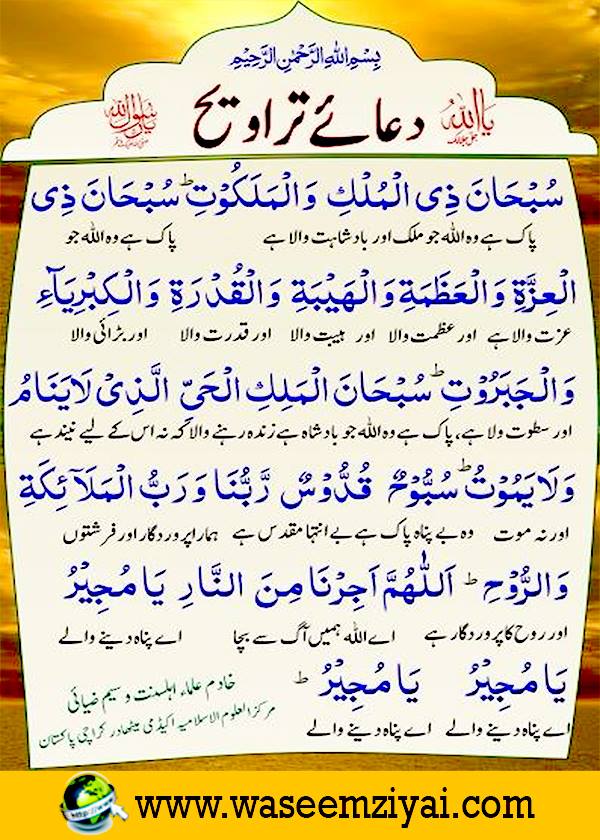 بِسْمِ اللهِ الرَّحْمٰنِ الرَّحِيْمِ
یا اللہ جل جلالک
دعائے تراویح
یا رسول اللہ
سُبْحَانَ ذِی الْمُلْكِ وَالْمَلَكُوْتِ ؕ سُبْحَانَ ذِی
پاک ہے وہ اللہ جو ملک اور بادشاہت والا ہے پاک ہے وہ اللہ جو
الْعِزَّةِ وَالْعَظَمَةِ وَالْهَيْبَةِ وَالْقُدْرَةِ وَالْكِبْرِيَآءِ
عزت والا ہے اور عظمت والا اور ہیبت والا اور قدرت والا اور بڑائی والا
وَالْجَبَرُوْتِ ؕ سُبْحَانَ الْمَلِكِ الْحَیِّ الَّذِیْ لَايَنَامُ
اور سطوت ولا ہے، پاک ہے وہ اللہ جو بادشاہ ہے زندہ رہنے والا کہ نہ اس کے لیے نیند ہے
وَلَايَمُوْتُ ؕ سُبُّوْحٌ قُدُّوْسٌ رَّبُّنَا وَرَبُّ الْمَلَآئِكَةِ
اور نہ موت وہ بے پناہ پاک ہے بے انتہا مقدس ہے ہمارا پروردگار اور فرشتوں
وَالرُّوْحِ ؕ اَللّٰهُمَّ اَجِرْنَا مِنَ النَّارِ يَا مُجِيْرُ
اور روح کا پروردگار ہے اے اللہ ہمیں آگ سے بچا اے پناہ دینے والے
يَا مُجِيْرُ يَا مُجِيْرُ ؕ
اے پناہ دینے والے اے پناہ دینے والے
خادم علماء اہلسنت وسیم ضیائی
مرکز العلوم الاسلامیہ اکیڈمی میٹھادر کراچی پاکستان
www.waseemziyai.com